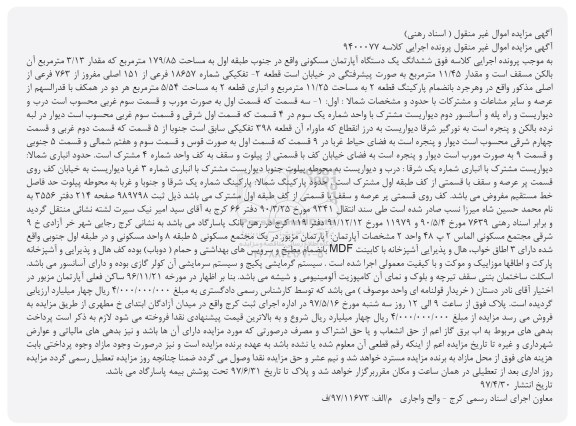 آگهی مزایده اموال غیر منقول ( اسناد رهنی)
آگهی مزایده اموال غیر منقول پرونده اجرایی کلاسه ۹۴۰۰۰۷۷
به موجب پرونده اجرایی کلاسه فوق ششدانگ یک دستگاه آپارتمان مسکونی واقع در جنوب طبقه اول به مساحت ۱۷۹/۸۵ مترمربع که مقدار ۳/۱۳ مترمربع آن
بالکن مسقف است و مقدار ۱۱/۴۵ مترمربع به صورت پیشرفتگی در خیابان است قطعه ۲- تفکیکی شماره ۱۸۶۵۷ فرعی از ۱۵۱ اصلی مفروز از ۷۶۳ فرعی از
اصلی مذکور واقع در وهرجرد بانضمام پارکینگ قطعه ۲ به مساحت ۱۱/۲۵ مترمربع و انباری قطعه ۲ به مساحت ۵/۵۴ مترمربع هر دو در همکف با قدرالسهم از
عرصه و سایر مشاعات و مشترکات با حدود و مشخصات شمالا : اول: ۱- سه قسمت که قسمت اول به صورت مورب و قسمت سوم غربی محسوب است درب و
دیواریست و راه پله و آسانسور دوم دیواریست مشترک با واحد شماره یک سوم در ۴ قسمت که قسمت اول شرقی و قسمت سوم غربی محسوب است دیوار در لبه
نرده بالکن و پنجره است به نورگیر شرقا دیواریست به درز انقطاع که ماوراء آن قطعه ۳۹۸ تفکیکی سابق است جنوبا از ۵ قسمت که قسمت دوم غربی و قسمت
چهارم شرقی محسوب است دیوار و پنجره است به فضای حیاط غربا در ۹ قسمت که قسمت اول به صورت قوس و قسمت سوم و هفتم شمالی و قسمت ۵ جنوبی
و قسمت ۹ به صورت مورب است دیوار و پنجره است به فضای خیابان کف با قسمتی از پیلوت و سقف به کف واحد شماره ۴ مشترک است. حدود انباری شمالا:
دیواریست مشترک با انباری شماره یک شرقا : درب و دیواریست به محوطه پیلوت جنوبا دیواریست مشترک با انباری شماره ۳ غربا دیواریست به خیابان کف روی
قسمت پر عرصه و سقف با قسمتی از کف طبقه اول مشترک است. حدود پارکینگ شمالا: پارکینگ شماره یک شرقا و جنوبا و غربا به محوطه پیلوت حد فاصل
خط مستقیم مفروض می باشد. کف روی قسمتی پر عرصه و سقف با قسمتی از کف طبقه اول مشترک می باشد ذیل ثبت ۹۸۹۷۹۸ صفحه ۲۱۴ دفتر ۳۵۵۶ به
نام محمد حسین شاه میرزا نسب صادر شده است طی سند انتقال ۹۲۴۱ مورخ ۹۰/۳/۲۵ دفتر ۶۶ کرج به آقای سید امیر نیک سیرت لشته نشائی منتقل گردید
و برابر اسناد رهنی ۷۶۳۹ مورخ ۹۰/۵/۴ و ۱۱۹۷۹ مورخ ۹۱/۱۲/۱۲ دفتر ۱۱۹ کرج در رهن بانک پاسارگاد می باشد به نشانی کرج رجایی شهر خر آزادی خ ۹
شرقی مجتمع مسکونی الماس ۲ پ ۴۸ واحد ۲ مشخصات آپارتمان: آپارتمان مزبور در یک مجتمع مسکونی ۵ طبقه ۸ واحد مسکونی و در طبقه اول جنوبی واقع
شده دارای ۳ اطاق خواب، هال و پذیرایی آشپزخانه با کابینت MDF بانضمام مطبخ و سرویس های بهداشتی و حمام ( دوباب) بوده کف هال و پذیرایی و آشپزخانه
پارکت و اطاقها موزاییک و موکت و با کیفیت معمولی اجرا شده است . سیستم گرمایشی پکیج و سیستم سرمایشی آن کولر گازی بوده و دارای آسانسور می باشد.
اسکلت ساختمان بتنی سقف تیرچه و بلوک و نمای آن کامپوزیت آلومینیومی و شیشه می باشد. بنا بر اظهار در مورخه ۹۶/۱۱/۲۱ ساکن فعلی آپارتمان مزبور در
اختیار آقای نادر دستان ( خریدار قولنامه ای واحد موصوف ) می باشد که توسط کارشناس رسمی دادگستری به مبلغ ۴/۰۰۰/۰۰۰/۰۰۰ ریال چهار میلیارد ارزیابی
گردیده است. پلاک فوق از ساعت ۹ الی ۱۲ روز سه شنبه مورخ ۹۷/۵/۱۶ در اداره اجرای ثبت کرج واقع در میدان آزادگان ابتدای خ مطهری از طریق مزایده به
فروش می رسد مزایده از مبلغ ۴/۰۰۰/۰۰۰/۰۰۰ ریال چهار میلیارد ریال شروع و به بالاترین قیمت پیشنهادی نقدا فروخته می شود لازم به ذکر است پرداخت
بدهی های مربوط به اب برق گاز اعم از حق انشعاب و یا حق اشتراک و مصرف درصورتی که مورد مزایده دارای آن ها باشد و نیز بدهی های مالیاتی و عوارض
شهرداری و غیره تا تاریخ مزایده اعم از اینکه رقم قطعی آن معلوم شده یا نشده باشد به عهده برنده مزایده است و نیز درصورت وجود مازاد وجوه پرداختی بابت
هزینه های فوق از محل مازاد به برنده مزایده مسترد خواهد شد و نیم عشر و حق مزایده نقدا وصول می گردد ضمنا چنانچه روز مزایده تعطیل رسمی گردد مزایده
روز اداری بعد از تعطیلی در همان ساعت و مکان مقرر برگزار خواهد شد و پلاک تا تاریخ ۹۷/۶/۳۱ تحت پوشش بیمه پاسارگاد می باشد.
تاریخ انتشار ۹۷/۴/۳۰
معاون اجرای اسناد رسمی کرج - والح واجاری م/الف: ۹۷/۱۱۶۷۳/ف